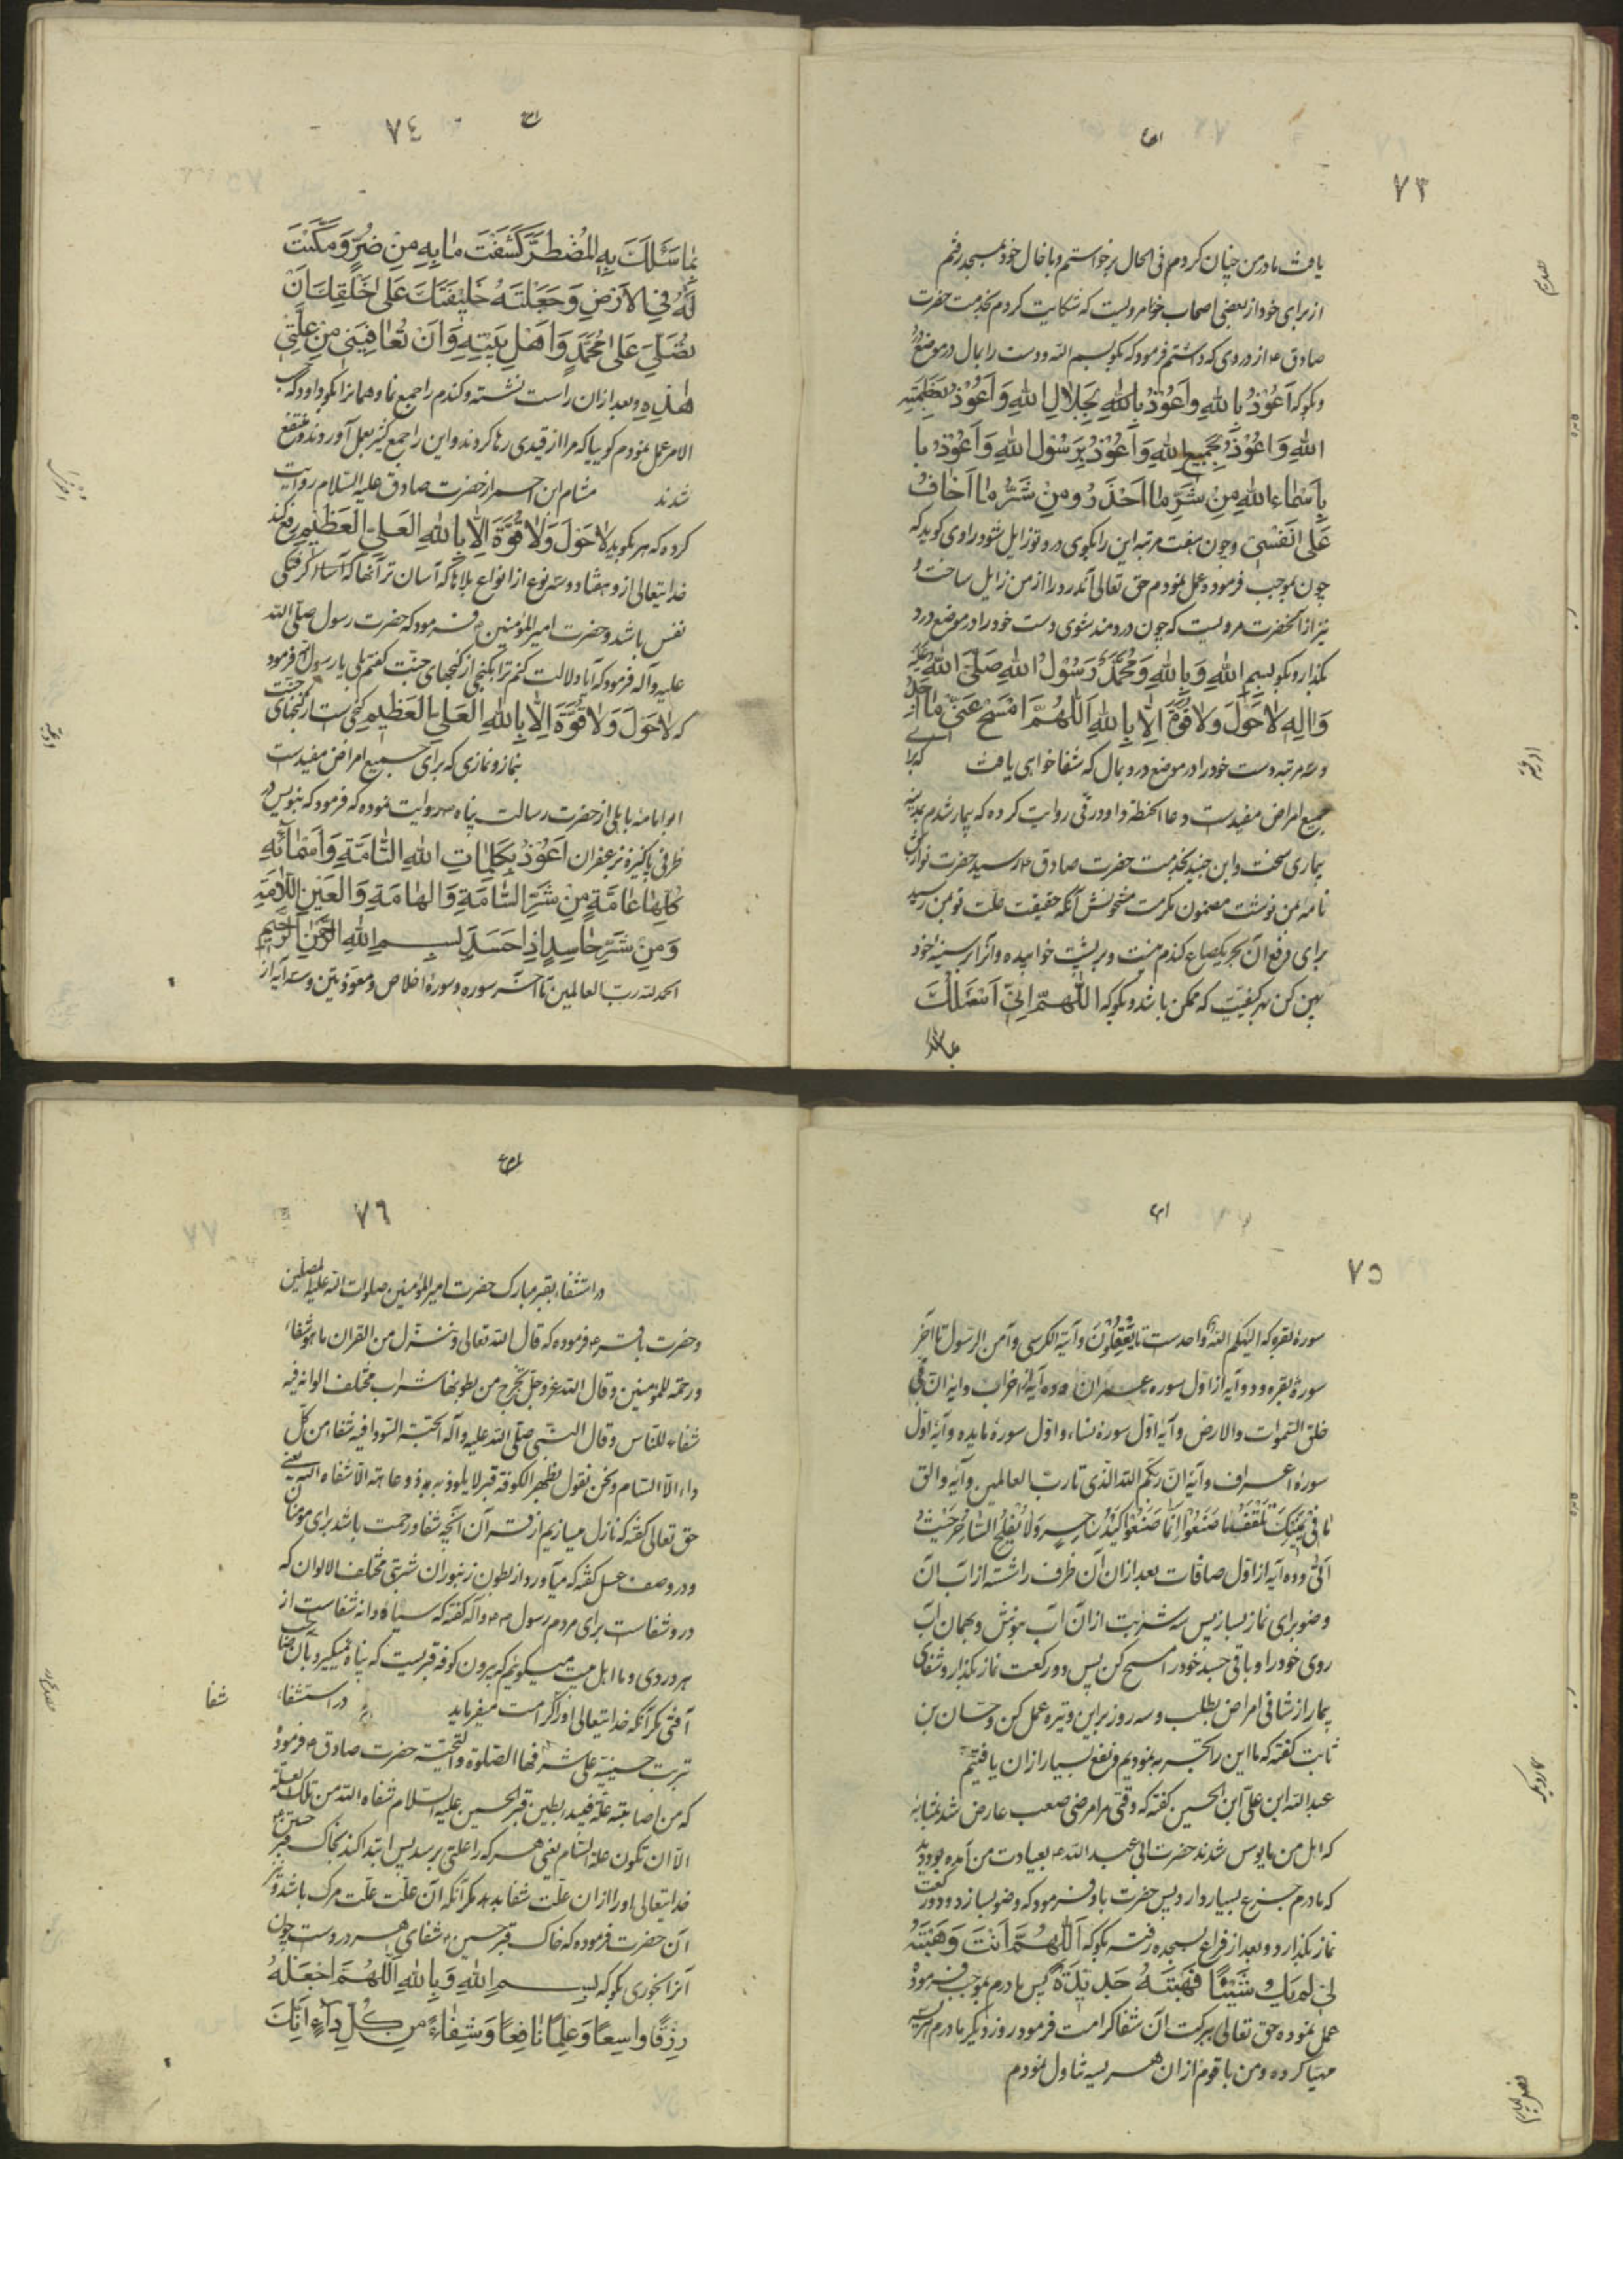 ٧٣
یافت مادر من چنان کرد و من فی الحال برخواستم و با خال خود بمسجد رفتم
از برای خود از بعضی اصحاب خوا مرویست که شکایت کردم بخدمت حضرت
صادق ع از دردی که داشتم فرمود که بکو بسم الله و دست را بمال در موضع درد
و بکو که اَعُوْذُ بِاللهِ وَاَعُوْذُ بِاللهِ بِجَلَالِ اللهِ وَاَعُوْذُ بِعَظَمَتِهِ
اللهِ وَاَعُوْذُ بِجَمیعِ اللهِ وَاَعُوْذُ بِرَسُوْلِ اللهِ وَاَعُوْذُ با
بِاَسْمَاءِ اللهِ مِنْ شَرِّ مَا اَحْذَرُ وَمِنْ شَرِّ مَا اَخَافُ
عَلی نَفْسی و چون هفت مرتبه این را بکوی درد تو زایل شود راوی کوید که
چون بموجب فرموده عمل نمودم حق تعالی آن درد را از من زایل ساخت و
نیز از آنحضرت مرویست که چون دردمند شوی دست خود را در موضع درد
بکذار و بکو بسمِ اللهِ وَبِاللهِ وَمُحَمَّدٌ رَسُوْلُ اللهِ صَلَّی اللهُ عَلَیْهِ
وَآلِهِ لَا حَوْلَ وَلَا قُوَّةَ اِلّا بِاللهِ اَللّٰهُمَّ امْسَحْ عَنّی مَا اَجِدُ
و سه مرتبه دست خود را در موضع درد بمال که شفا خواهی یافت که برای
جمیع امراض مفیدست دعاء الحنطة داود رقی روایت کرده که بیمار شدم بمدینه
بیماری سخت و این خبر بخدمت حضرت صادق ع رسید حضرت نوازش
نامه بمن نوشت مضمون مکرمت مشحونش آنکه حقیقت علت تو بمن رسید
برای دفع آن بخر یکصاع کندم و بر پشت خوابیده و آنرا بر سینه خود
پهن کن بهر کیفیت که ممکن باشد و بکو که اللّٰهُمَّ اِنّی اَسْئَلُكَ
٧٤
بِمَا سَئَلَكَ بِهِ الْمُضْطَرُّ کَشَفْتَ مَا بِهِ مِنْ ضُرٍّ وَمَكَّنْتَ
لَهُ فِی الْاَرْضِ وَجَعَلْتَهُ خَلیفَتَكَ عَلٰی خَلْقِكَ اَنْ
تُصَلِّیَ عَلٰی مُحَمَّدٍ وَاَهْلِ بَیْتِهِ وَاَنْ تُعَافِیَنی مِنْ عِلَّتی
هٰذِهِ و بعد از ان راست نشسته و کندم را جمع نما و همانرا بکو داود که
الامر عمل نمودم کوییا که مرا از قیدی رها کردند و این را جمع کثیر بعمل آوردند و منتفع
شدند هشام ابن احمر از حضرت صادق علیه السلام روایت
کرده که هر که بکوید لَا حَوْلَ وَلَا قُوَّةَ اِلّا بِاللهِ الْعَلِیِّ الْعَظیمِ رفع کند
خدایتعالی از و هفتاد و سه نوع از انواع بلاها که آسان تر آنها
نفس باشد و حضرت امیر المؤمنین ع فرمود که حضرت رسول صلی الله
علیه و آله فرمود که آیا دلالت کنم ترا بکنجی از کنجهای جنت کفتم بلی یا رسول الله فرمود
که لَا حَوْلَ وَلَا قُوَّةَ اِلّا بِاللهِ الْعَلِیِّ الْعَظیمِ کنجی ست از کنجهای جنت
نماز و نمازی که برای جمیع امراض مفیدست
ابو امامه باهلی از حضرت رسالت پناه ص روایت نموده که فرمود که بنویس در
ظرفی پاکیزه بزعفران اَعُوْذُ بِکَلِمَاتِ اللهِ التَّامَّةِ وَاَسْمَائِهِ
کُلِّهَا عَامَّةٍ مِنْ شَرِّ السَّامَّةِ وَالْهَامَّةِ وَالْعَیْنِ اللَّامَّةِ
وَمِنْ شَرِّ حَاسِدٍ اِذَا حَسَدَ بِسْمِ اللهِ الرَّحْمٰنِ الرَّحیمِ
الحمد لله رب العالمین تا آخر سوره و سورهٔ اخلاص و معوذتین و سه آیه از
٧٥
سورهٔ بقره که الهکم اله واحد ست تا یَعْقِلُوْنَ و آیة الکرسی و آمن الرسول تا آخر
سورهٔ بقره و دو آیه از اول سوره عمران و ده آیه از اخر آن و ایه ان فی
خلق السموات و الارض و آیه اول سورهٔ نساء و اول سورهٔ مایده و آیه اول
سورهٔ اعراف و آیه ان ربکم الله الذی تا رب العالمین و آیه و الق
مَا فی یَمینِكَ تَلْقَفْ مَا صَنَعُوْا اِنَّمَا صَنَعُوْا کَیْدُ سَاحِرٍ وَلَا یُفْلِحُ السَّاحِرُ حَیْثُ
اَتٰی و ده آیه از اول صافات بعد از ان آن ظرف را شسته از آب آن
وضو برای نماز بساز پس سه شربت از ان آب بنوش و بهمان آب
روی خود را و باقی جسد خود را مسح کن پس دو رکعت نماز بکذار و شفای
بیمار از شافی امراض بطلب و سه روز بر این وتیره عمل کن و حسان بن
ثابت کفته که ما این را تجربه نمودیم و نفع بسیار از ان یافتیم
عبد الله ابن علی ابن الحسین کفته که وقتی مرا مرضی صعب عارض شد بمثابه
که اهل من مایوس شدند حضرت ابی عبد الله ع بعیادت من آمده بود دید
که مادرم جزع بسیار دارد پس حضرت باو فرمود که وضو بسازد و دو رکعت
نماز بکذارد و بعد از فراغ بسجده رفته بکو که اَللّٰهُمَّ اَنْتَ وَهَبْتَهُ
لی لَمْ یَكُ شَیْئًا فَهَبْتَهُ پس مادرم بموجب فرموده
عمل نموده حق تعالی ببرکت آن شفا کرامت فرمود روز دیکر مادرم هریسه
مهیا کرده و من با قوم از ان هریسه تناول نمودم
٧٦
در استشفاء بقبر مبارک حضرت امیر المؤمنین صلوات الله علیه
و حضرت باقر ع فرموده که قال الله تعالی و ننزل من القران ما هو شفاء
و رحمة للمؤمنین و قال الله عز و جل یخرج من بطونها شراب مختلف الوانه فیه
شفاء للناس و قال النبی صلی الله علیه و آله الحبة السودا فیه شفاء من کل
داء الا السام و نحن نقول بظهر الکوفة قبر لا یلوذ به ذو عاهة الا شفاه الله یعنی
حق تعالی کفته که نازل میسازیم از قرآن آنچه شفا و رحمت باشد برای مؤمنان
و در وصف عسل کفته که میآورد از بطون زنبوران شربتی مختلف الالوان که
درو شفاست برای مردم رسول ص و آله کفته که سیاه دانه شفاست از
هر دردی و ما اهل بیت میکوییم که بیرون کوفه قبریست که پناه نمیگیرد بان صاحب
آفتی مکر آنکه خدایتعالی او را کرامت میفرماید در استشفاء
شفا
تربت حسینیه علی مشرفها الصلوة و التحیة حضرت صادق ع فرموده
که من اصابته علة فلیبدء بطین قبر الحسین علیه السلام شفاه الله من تلک العلة
الا ان تکون علة السام یعنی هر که را علتی برسد پس ابتدا کند بخاک قبر حسین ع
خدایتعالی او را از ان علت شفا بدهد مکر آنکه آن علت علت مرک باشد و نیز
آن حضرت فرموده که خاک قبر حسین ع شفای هر دردست چون
آنرا بخوری بکو که بِسْمِ اللهِ وَبِاللهِ اَللّٰهُمَّ اجْعَلْهُ
رِزْقًا وَاسِعًا وَعِلْمًا نَافِعًا وَشِفَاءً مِنْ کُلِّ دَاءٍ اِنَّكَ